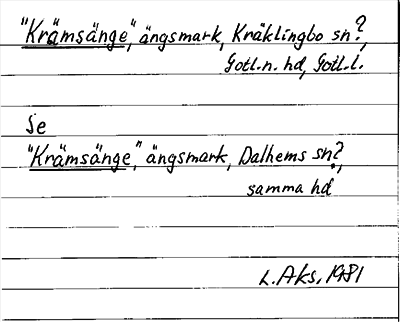 "Krämsänge", ängsmark, Kräklingbo sn?,
Gotl.n. hd, Gotl.l.
Se
"Krämsänge", ängsmark, Dalhems sn?,
samma hd
L. Aks. 1981